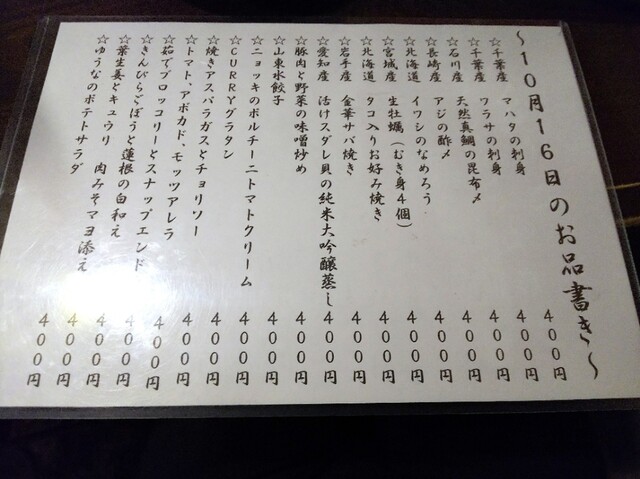 ～10月16日のお品書き～
☆千葉産　マハタの刺身　400円
☆千葉産　ワラサの刺身　400円
☆石川産　天然真鯛の昆布〆　400円
☆長崎産　アジの酢〆　400円
☆北海道　イワシのなめろう　400円
☆宮城産　生牡蠣（むき身4個）　400円
☆北海道　タコ入りお好み焼き　400円
☆岩手産　金華サバ焼き　400円
☆愛知産　活けスダレ貝の純米大吟醸蒸し　400円
☆豚肉と野菜の味噌炒め　400円
☆山東水餃子　400円
☆ニョッキのポルチーニトマトクリーム　400円
☆CURRYグラタン　400円
☆焼きアスパラガスとチョリソー　400円
☆トマト、アボカド、モッツアレラ　400円
☆茹でブロッコリーとスナップエンドウ　400円
☆きんぴらごぼうと蓮根の白和え　400円
☆葉生姜とキュウリ　肉みそマヨ添え　400円
☆ゆうなのポテトサラダ　400円